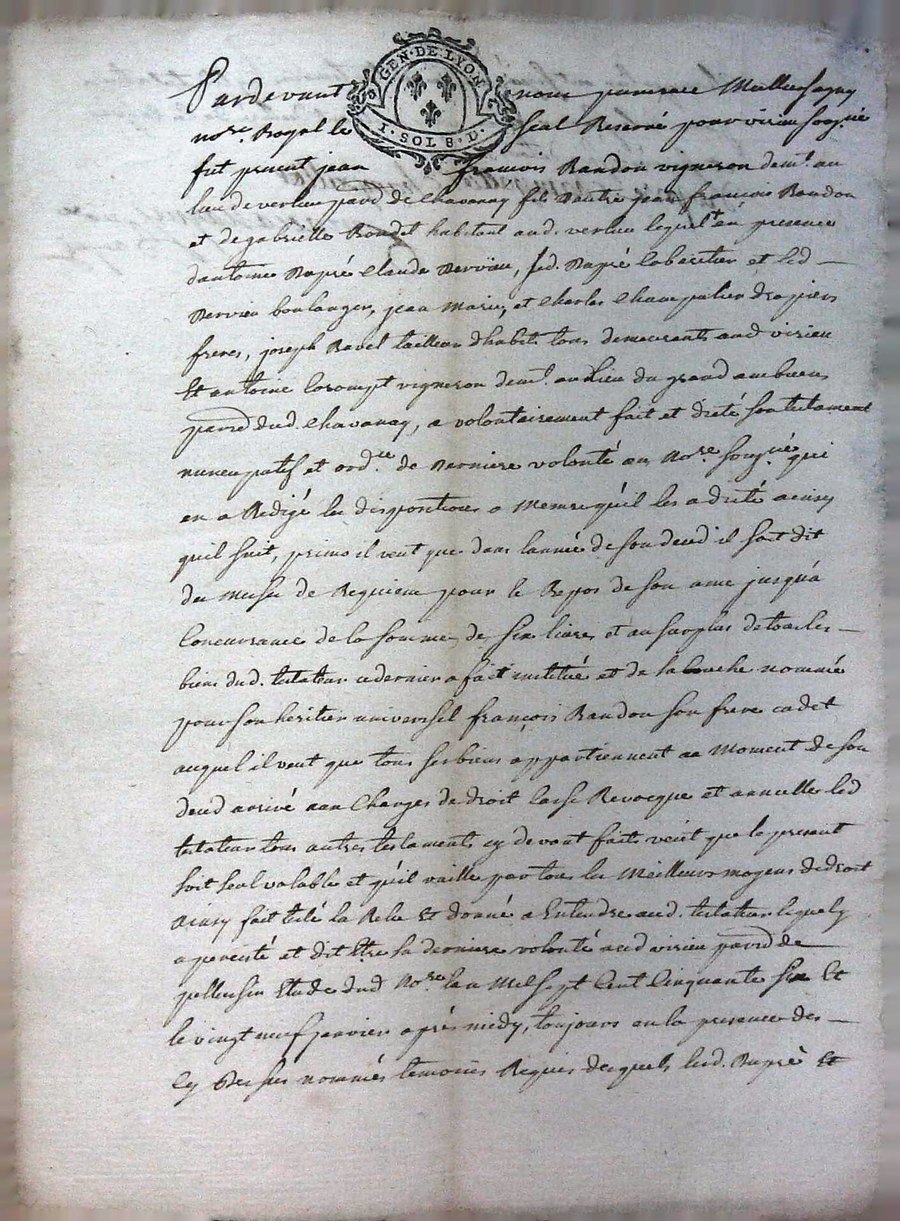 GEN · DE · LYON
1 · SOL 8 · D ·
Pardevant nous
no.re Royal le seul Reservé pour virieu sousg.né
fut present jean françois Randon vigneron dem.t au
lieu de verlieu par.d de Chavanay fils d'autre jean françois Randon
et de gabrielle Rondet habitant aud. verlieu lequel en presence
dantoine Dupré Claude Dervieu, led. Dupré Cabaretier et led
Dervieu boulanger, jean Marie, et Charles Champalier drapiers
freres, joseph Ravel tailleur dhabits tous demeurants aud virieu
Et antoine vigneron dem.t au Lieu du grand
par.d dud. Chavanay, a volontairement fait et dicté son testament
nuncupatif et ord.re de derniere volonté au No.re sousg.né qui
en a Redigé les dispositions a Mesure qu'il les a dicté ainsy
quil suit, primo il veut que dans lannée de son deced il soit dit
des Messes de Requiem pour le Repos de son ame jusqu'a
Concurrance de la somme de six livres et au surplus de tous les
biens dud. testateur ce dernier a fait institué et de sa bouche nommé
pour son heritier universel françois Randon son frere cadet
auquel il veut que tous ses biens appartiennent au Moment de son
deced arrivé aux Charges de droit Casse Revocque et annulle led
testateur tous autres testaments cy devant faits veut que le present
soit seul valable et qu'il vaille par tous les Meilleurs moyens de droit
Ainsy fait la Relu Et donné a Entendre aud. testateur lequel y
a persisté et dit Etre sa derniere volonté aud virieu par.d de
pellussin Etude dud No.re lan Mil sept Cent Cinquante six Et
le vingt neuf janvier après midy, toujours en la presence des
Cy Dessus nommés temoins Requis desquels led. Dupré Et